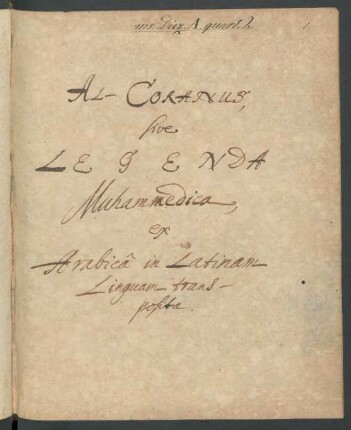 ms. Diez A quart. 2
1
AL-CORANUS,
sive
LEGENDA
Muhammedica,
ex
Arabicâ in Latinam
Linguam trans-
posita.